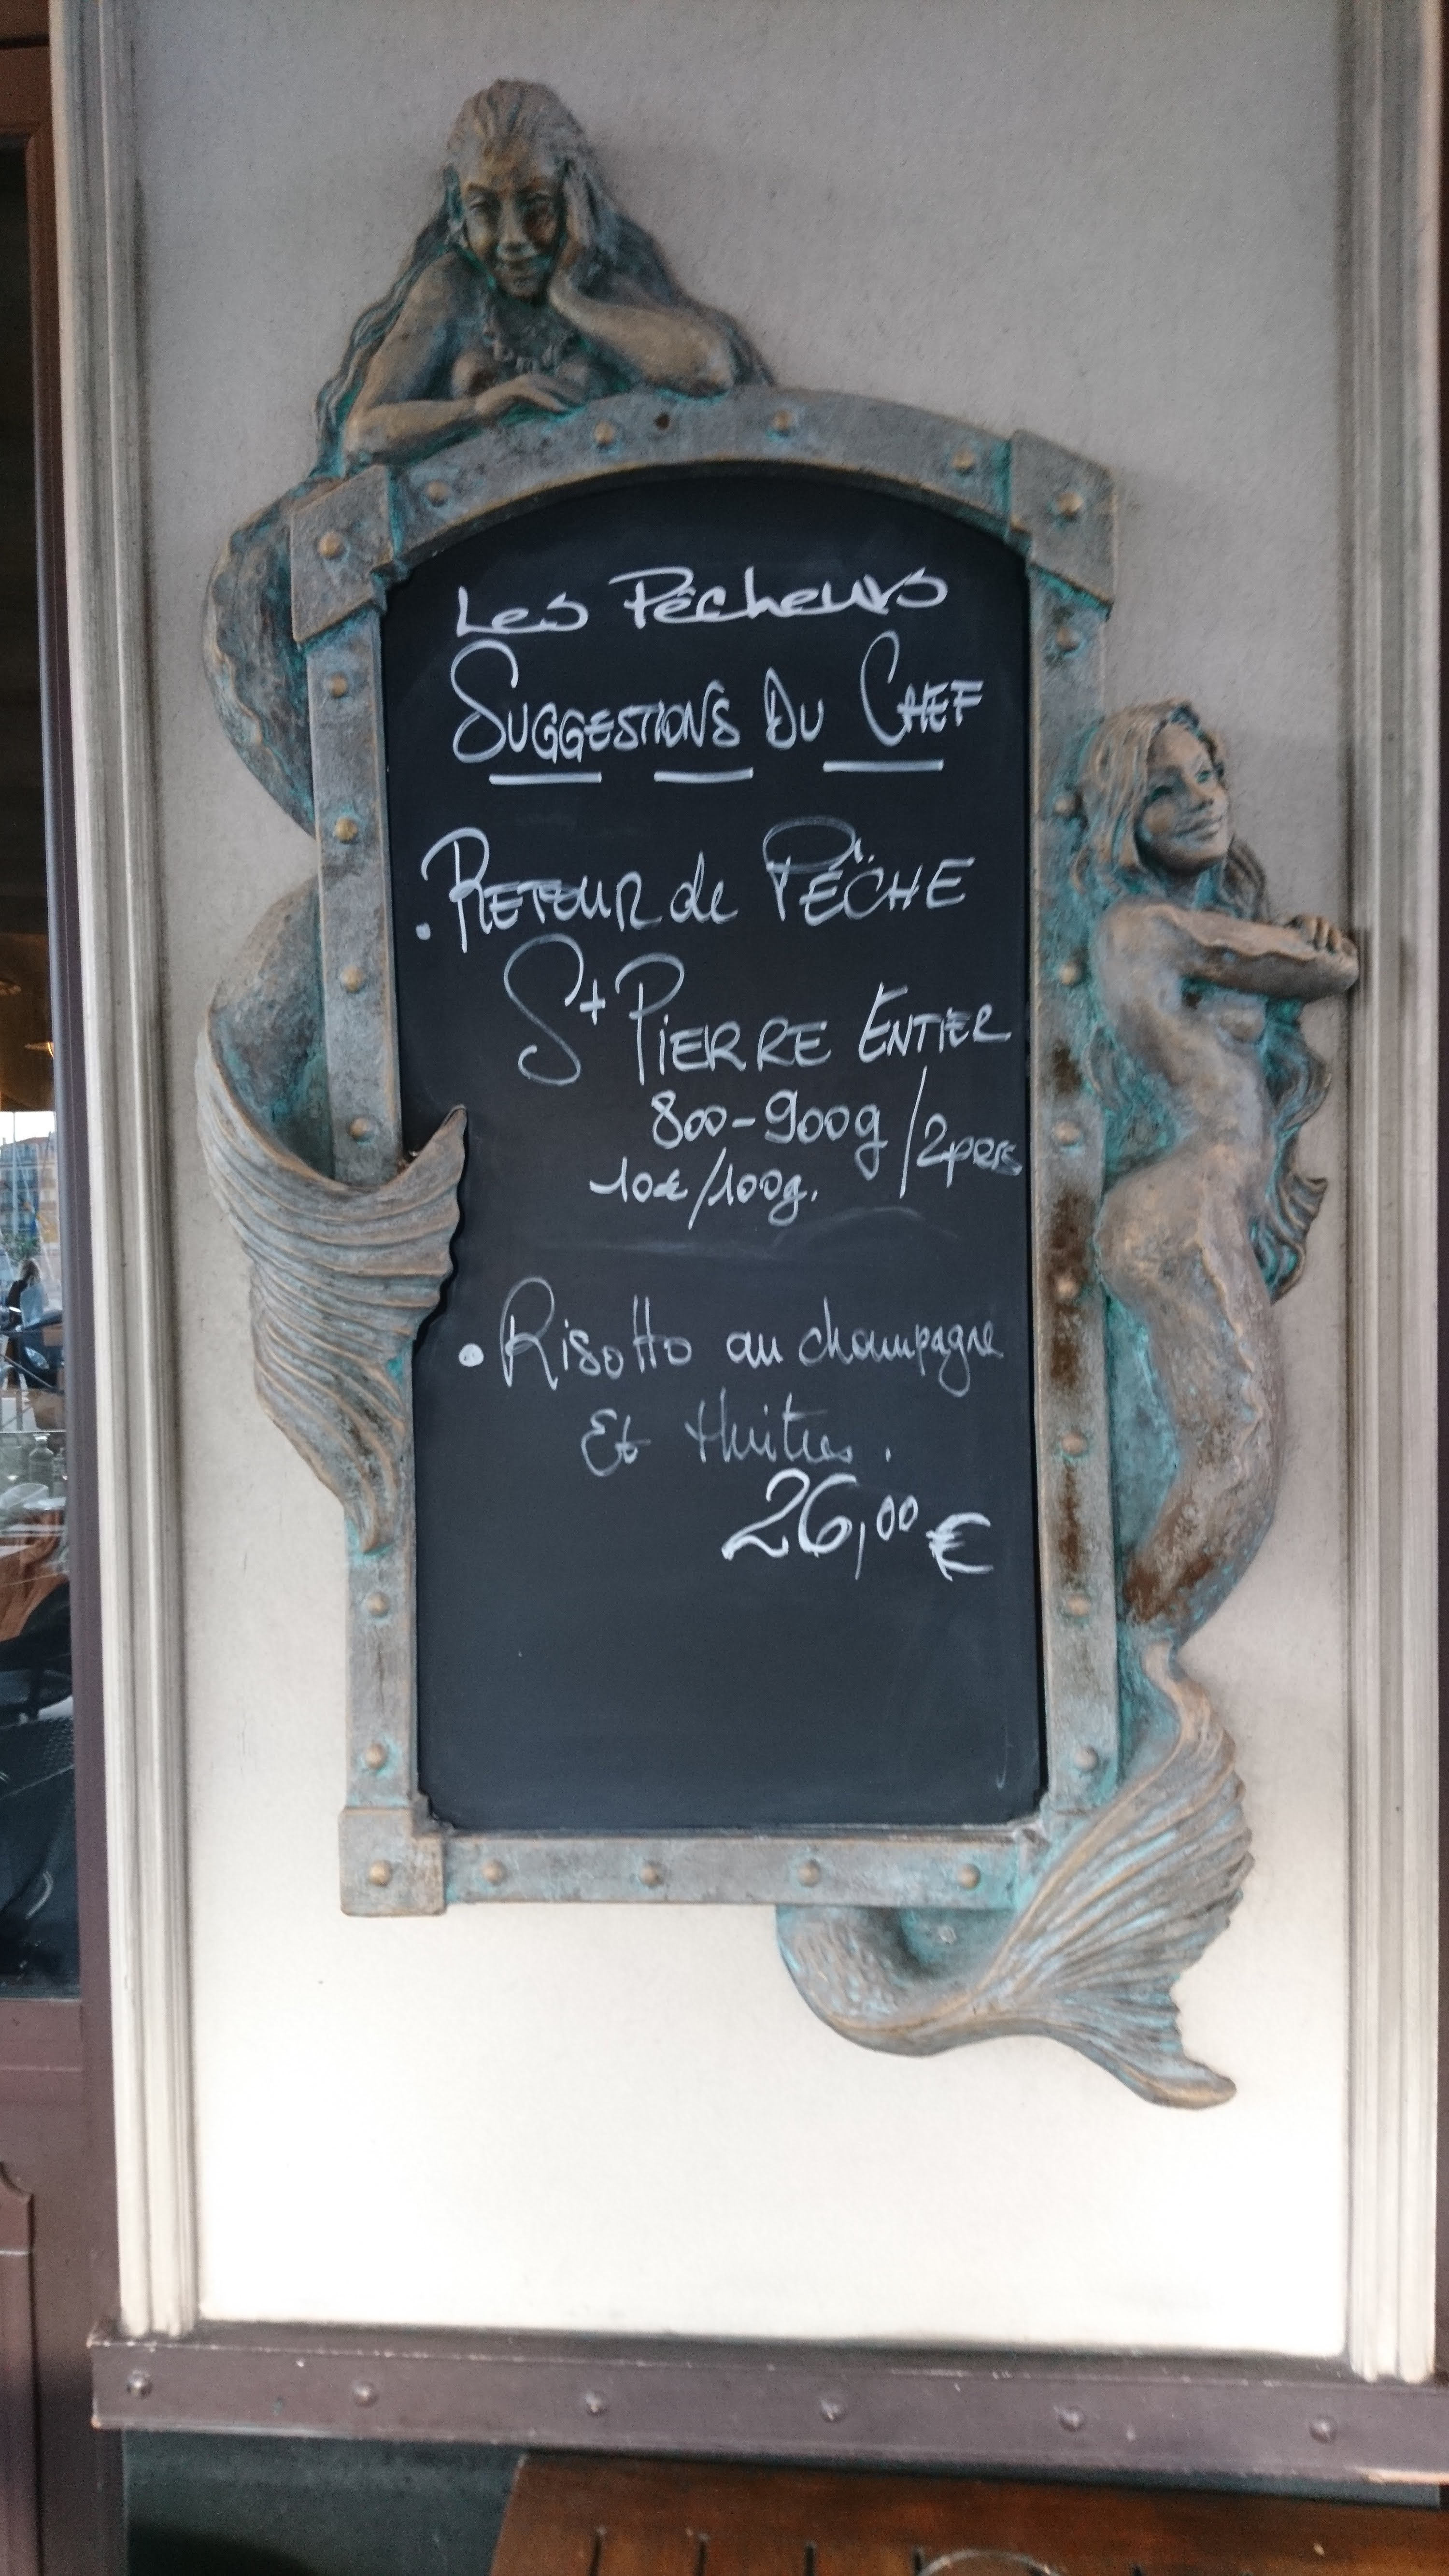 Les Pêcheurs
SUGGESTIONS DU CHEF
. RETOUR de PÊCHE
St PIERRE ENTIER
800-900g /2pers
10€/100g.
• Risotto au champagne
Et Huitres.
26,00 €